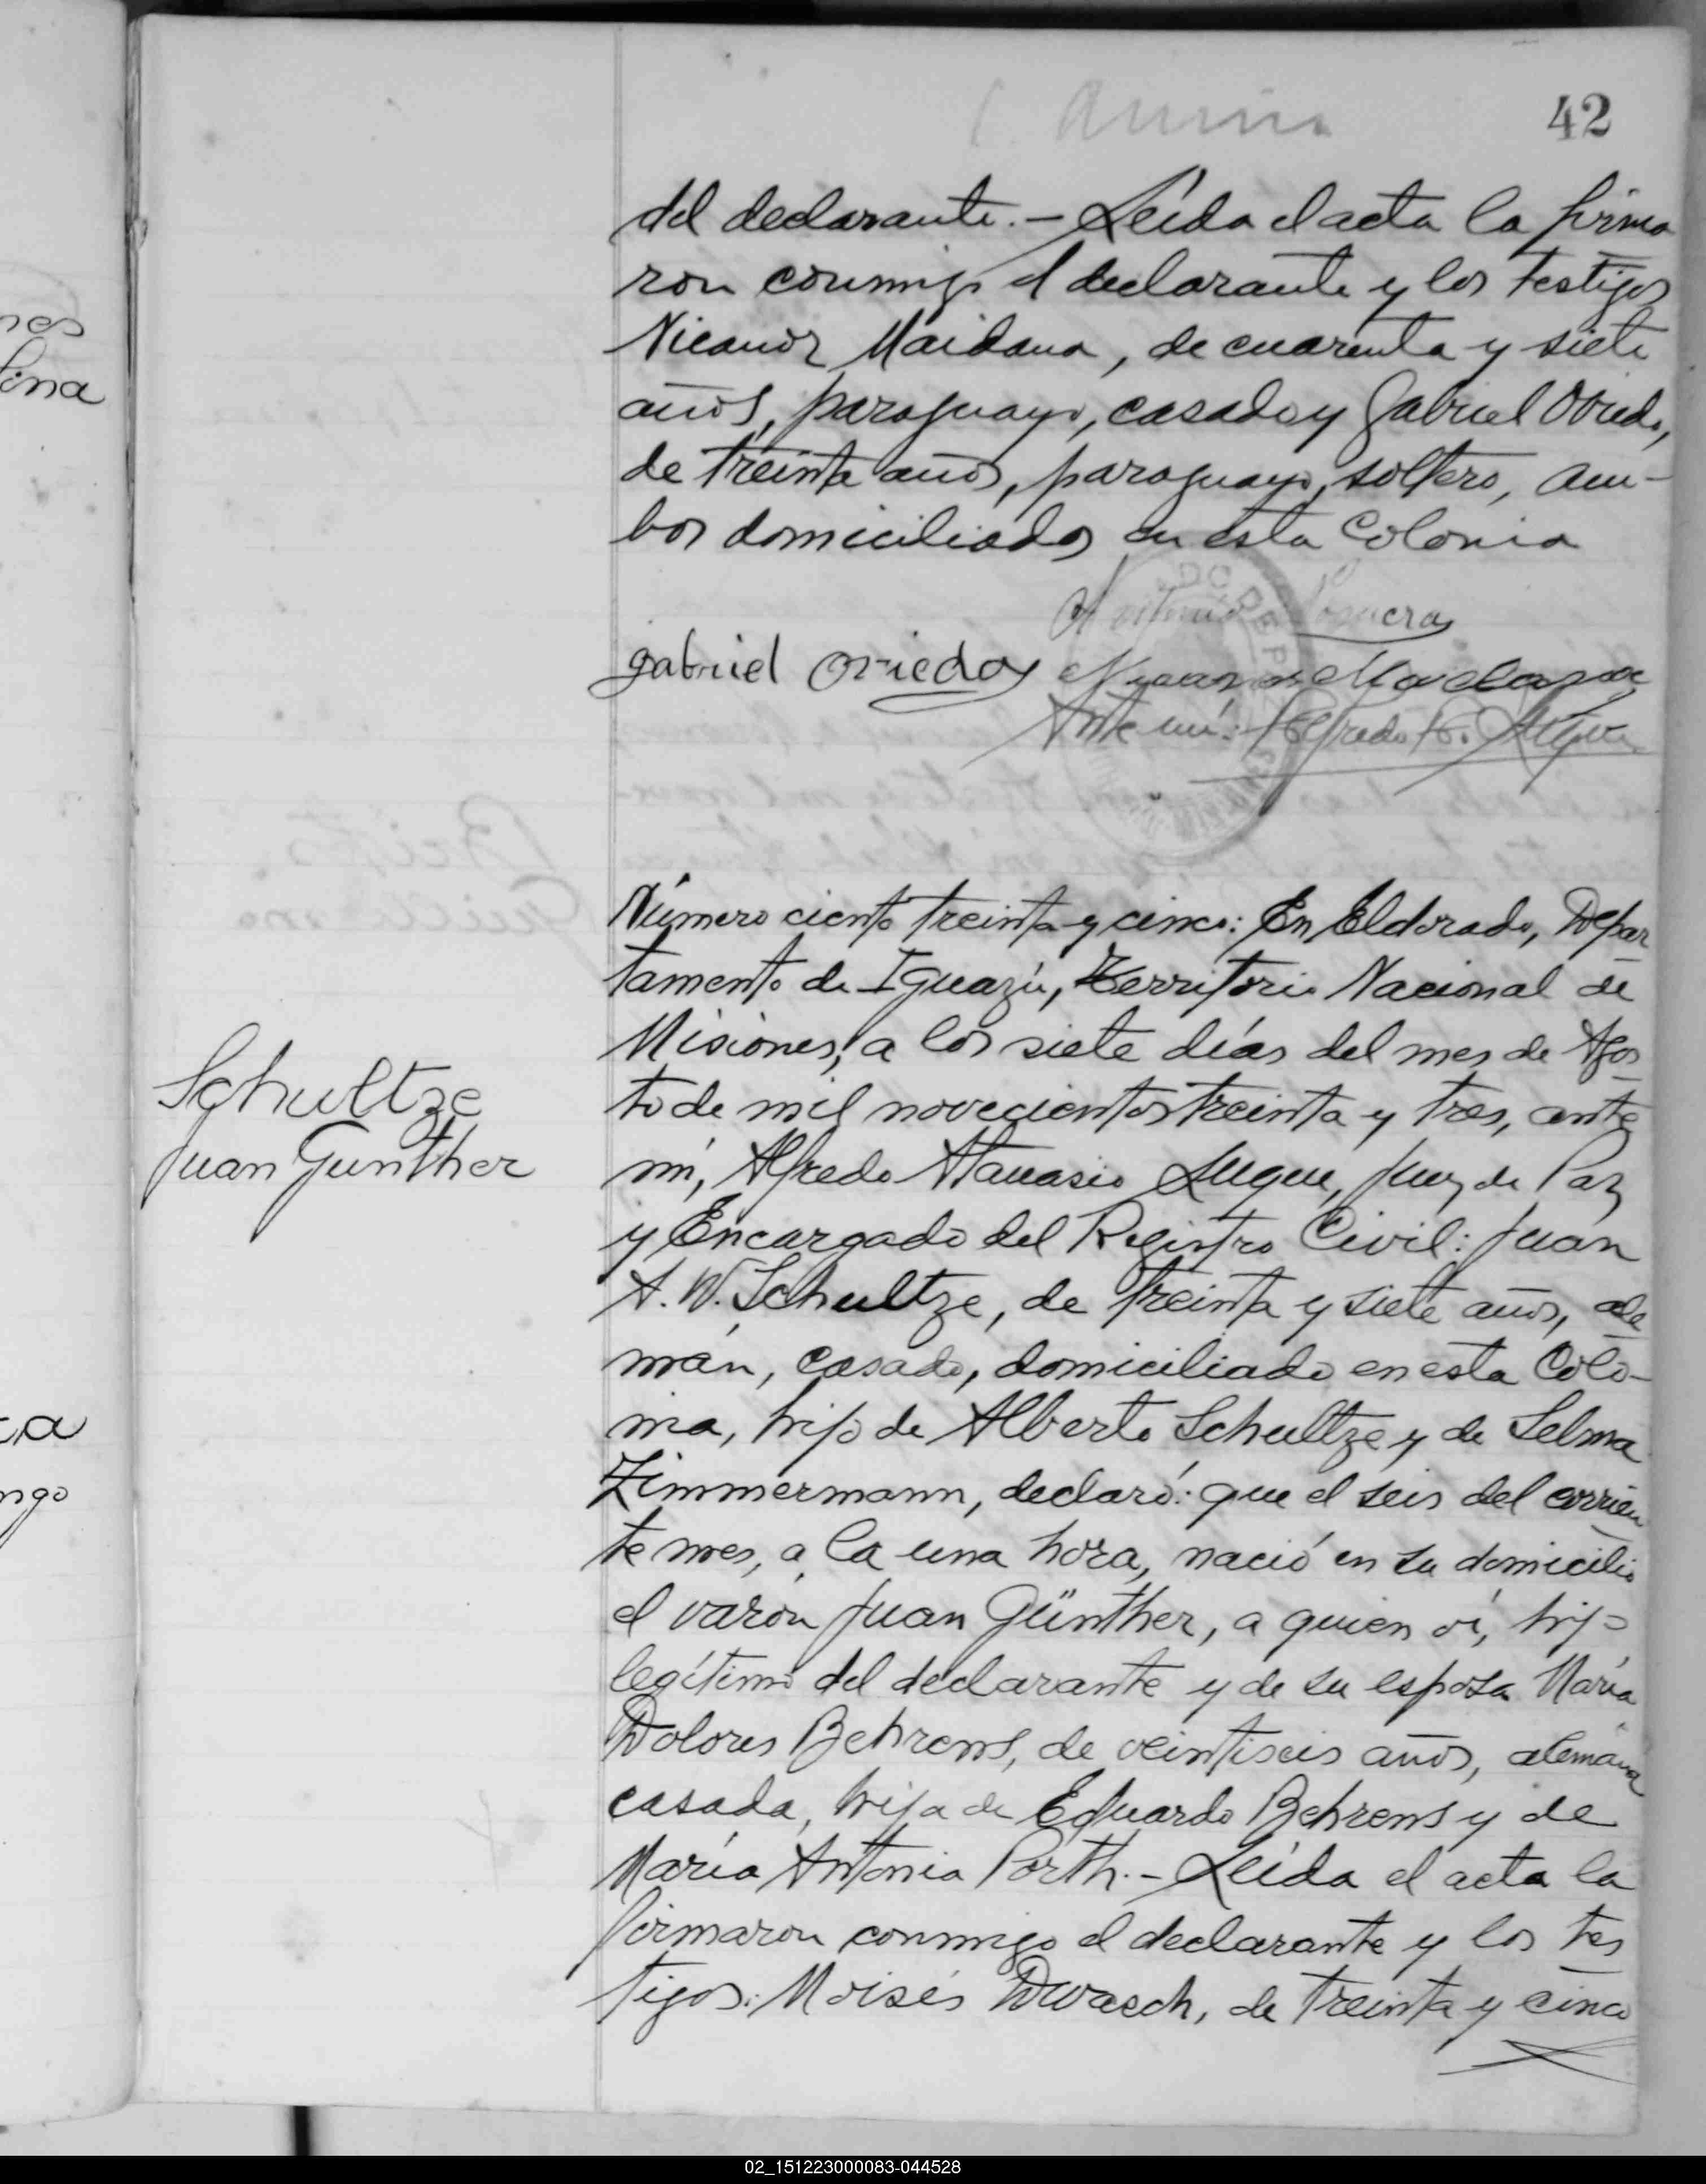 42
del declarante.- Leída el acta la firma
ron conmigo el declarante y los testigos
Nicanor Maidana, de cuarenta y siete
años, paraguayo, casado y Gabriel Oviedo,
de treinta años, paraguayo, soltero, am-
bos domiciliados en esta Colonia
gabriel oviedo
Ante mí: Alfredo A. Luque
Número ciento treinta y cinco: En Eldorado, Depar
tamento de Iguazú, Territorio Nacional de
Misiones, a los siete días del mes de Agos
to de mil novecientos treinta y tres, ante
mí, Alfredo Atanasio Luque, Juez de Paz
y Encargado del Registro Civil: Juan
A. W. Schultze, de treinta y siete años, ale
mán, casado, domiciliado en esta Colo-
nia, hijo de Alberto Schultze y de Selma
Zimmermann, declaró: que el seis del corrien
te mes, a la una hora, nació en su domicilio
el varón Juan Günther, a quien ví, hijo
legítimo del declarante y de su esposa María
Dolores Behrens, de veintiseis años, alemana
casada, hija de Eduardo Behrens y de
María Antonia Porth.- Leída el acta la
firmaron conmigo el declarante y los tes
tigos: Moisés Dwrech, de treinta y cinco
Schultze
Juan Gunther
02_151223000083-044528